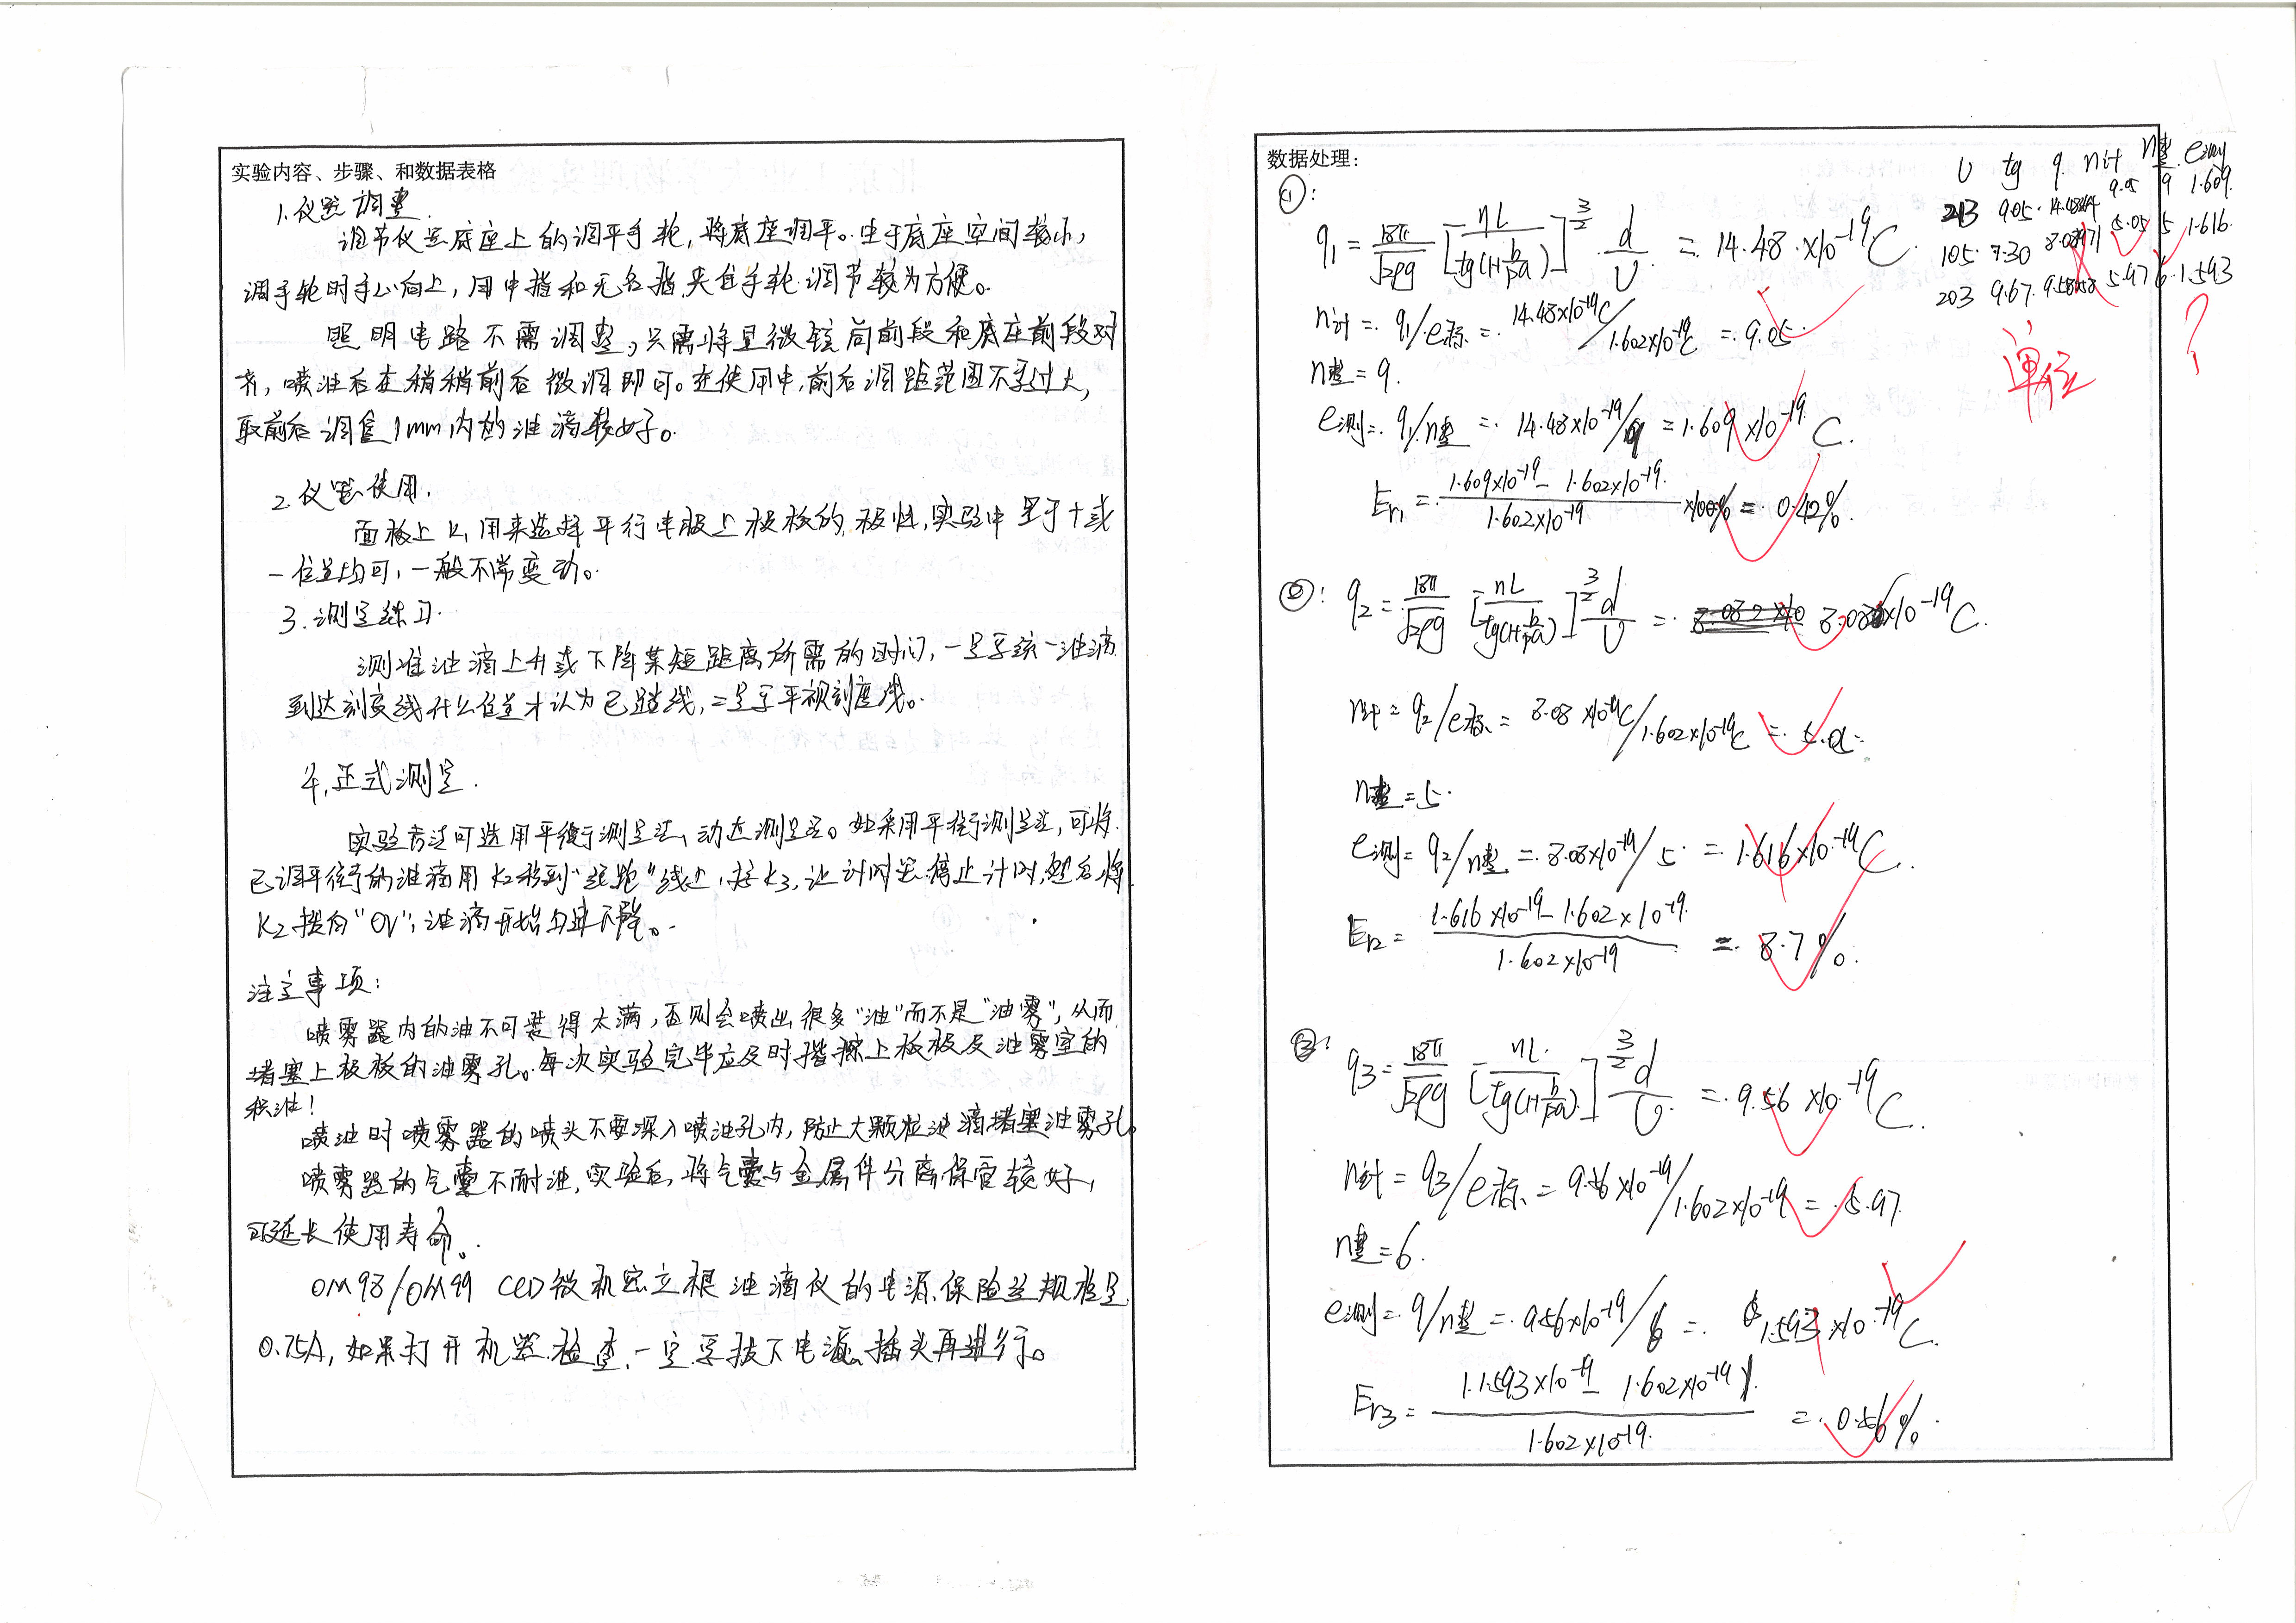 实验内容、步骤、和数据表格
1.仪器调整.
调节仪器底座上的调平手轮,将底座调平。由于底座空间较小,
调手轮时手心向上,用中指和无名指夹住手轮调节较为方便。
照明电路不需调整,只需将显微镜筒前段和底座前段对
齐,喷油后在稍稍前后微调即可。在使用中,前后调距范围不要过大,
取前后调焦1mm内的油滴较好。
2.仪器使用.
面板上K1用来选择平行电极上极板的极性,实验中置于十或
一位置均可,一般不常变动。
3.测量练习.
测准油滴上升或下降某短距离所需的时间,一是要统一油滴
到达刻度线什么位置才认为已踏线,二是要平视刻度线。
4.正式测量.
实验方法可选用平衡测量法、动态测量法。如采用平衡测量法,可将
已调平衡的油滴用K2移到“起跑”线上,按K3,让计时器停止计时,然后将
K2拨向“0V”,油滴开始匀速下降。
注意事项:
喷雾器内的油不可装得太满,否则会喷出很多“油”而不是“油雾”,从而
堵塞上极板的油雾孔。每次实验完毕应及时揩擦上极板及油雾室的
积油!
喷油时喷雾器的喷头不要深入喷油孔内,防止大颗粒油滴堵塞油雾孔。
喷雾器的气囊不耐油,实验后,将气囊与金属件分离保管较好,
可延长使用寿命。
OM98/OM99 CCD微机密立根油滴仪的电源保险丝规格是
0.75A,如果打开机器检查,一定要拔下电源插头再进行。
数据处理:
U tg q n计 n整 e测
213 9.05 9.05 9 1.609
105 7.30 5.05 5 1.616
203 9.67 5.97 6 1.593
单位
?
①:
q1 = 18π/√2ρg [ηL/tg(1+b/pa)]^3/2 · d/U = 14.48×10^-19 C
n计 = q1/e标 = 14.48×10^-19C/1.602×10^-19C = 9.05
n整 = 9.
e测 = q1/n整 = 14.48×10^-19/9 = 1.609×10^-19 C.
Er1 = 1.609×10^-19 - 1.602×10^-19 / 1.602×10^-19 ×100% = 0.42%.
②: q2 = 18π/√2ρg [ηL/tg(1+b/pa)]^3/2 d/U = 8.08×10^-19 C.
n计 = q2/e标 = 8.08×10^-19C/1.602×10^-19C =
n整 = 5.
e测 = q2/n整 = 8.08×10^-19/5 = 1.616×10^-19 C.
Er2 = 1.616×10^-19 - 1.602×10^-19 / 1.602×10^-19 = 8.7%.
③: q3 = 18π/√2ρg [ηL/tg(1+b/pa)]^3/2 d/U = 9.56×10^-19 C.
n计 = q3/e标 = 9.56×10^-19/1.602×10^-19 = 5.97
n整 = 6.
e测 = q/n整 = 9.56×10^-19/6 = 1.593×10^-19 C.
Er3 = |1.593×10^-19 - 1.602×10^-19| / 1.602×10^-19 = 0.56%.